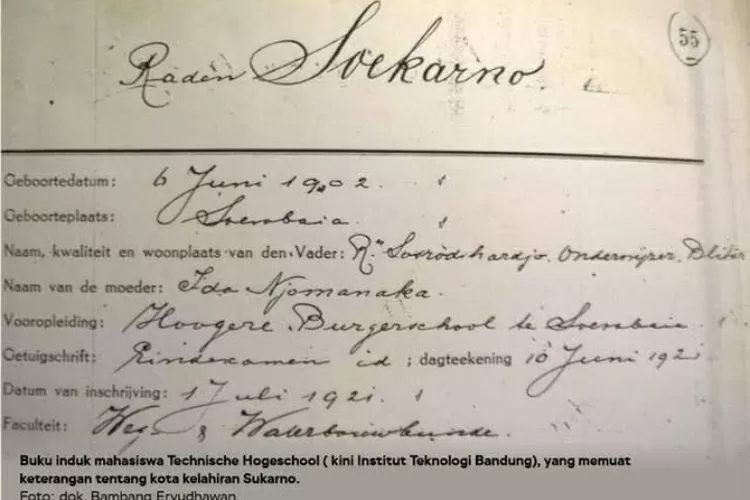 55
Raden Soekarno.
Geboortedatum: 6 Juni 1902.
Geboorteplaats: Soerabaia.
Naam, kwaliteit en woonplaats van den Vader: Rn Sosrodihardjo. Onderwijzer. Blitar
Naam van de moeder: Ida Njomanaka.
Vooropleiding: Hoogere Burgerschool te Soerabaia
Getuigschrift: Eindexamen id; dagteekening 10 Juni 1921
Datum van inschrijving: 1 Juli 1921.
Faculteit: Weg & Waterbouwkunde.
Buku induk mahasiswa Technische Hogeschool ( kini Institut Teknologi Bandung), yang memuat
keterangan tentang kota kelahiran Sukarno.
Foto: dok. Bambang Eryudhawan